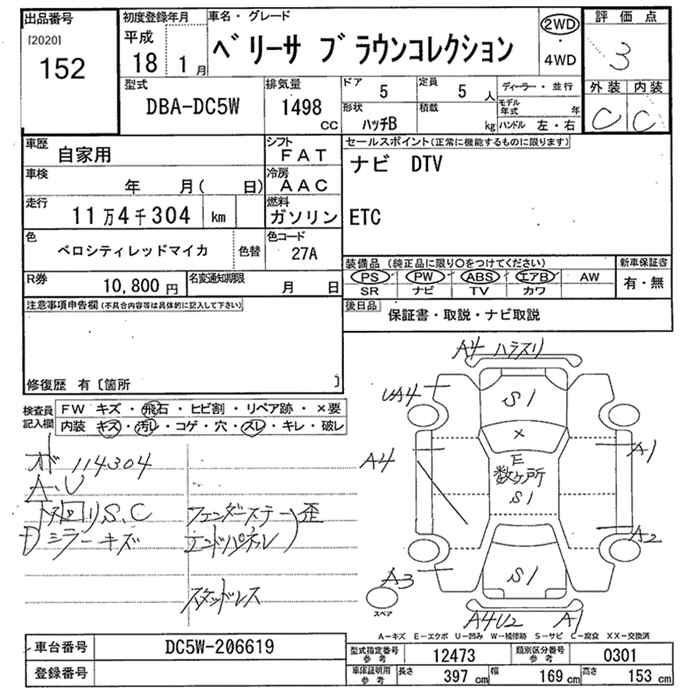 出品番号
[2020]
152
初度登録年月
平成
18 1 月
車名・グレード
ベリーサ ブラウンコレクション
2WD
・
4WD
評価点
3
外装 内装
C C
型式
DBA-DC5W
排気量
1498
CC
ドア
5
定員
5 人
形状
ハッチB
積載
kg
ディーラー・並行
モデル年式 年
ハンドル 左・右
車歴
自家用
シフト
FAT
車検
年 月( 日)
冷房
AAC
走行
11万4千304 km
燃料
ガソリン
色
ベロシティレッドマイカ
色替
色コード
27A
R券
10,800 円
名変通知期限
月 日
セールスポイント(正常に機能するものに限ります)
ナビ DTV
ETC
装備品(純正品に限り〇をつけてください)
PS PW ABS エアB AW
SR ナビ TV カワ
新車保証書
有・無
後日品
保証書・取説・ナビ取説
注意事項申告欄(不具合内容等は具体的に記入して下さい)
修復歴 有〔箇所 〕
検査員
記入欄
FW キズ・飛石・ヒビ割・リペア跡・×要
内装 キズ・汚レ・コゲ・穴・スレ・キレ・破レ
114304
A.U
下回りS.C
ミラーキズ
フェンダーステー歪
エンドパネル
スタッドレス
A4
UA4
S1
×
A4
E
数ヶ所
S1
A1
A2
A3
S1
A4U2
A1
スペア
A―キズ E―エクボ U―凹み W―補修跡 S―サビ C―腐食 XX―交換済
車台番号
DC5W-206619
登録番号
型式指定番号
参考
12473
類別区分番号
参考
0301
車庫証明用
参考
長さ
397 cm
幅
169 cm
高さ
153 cm